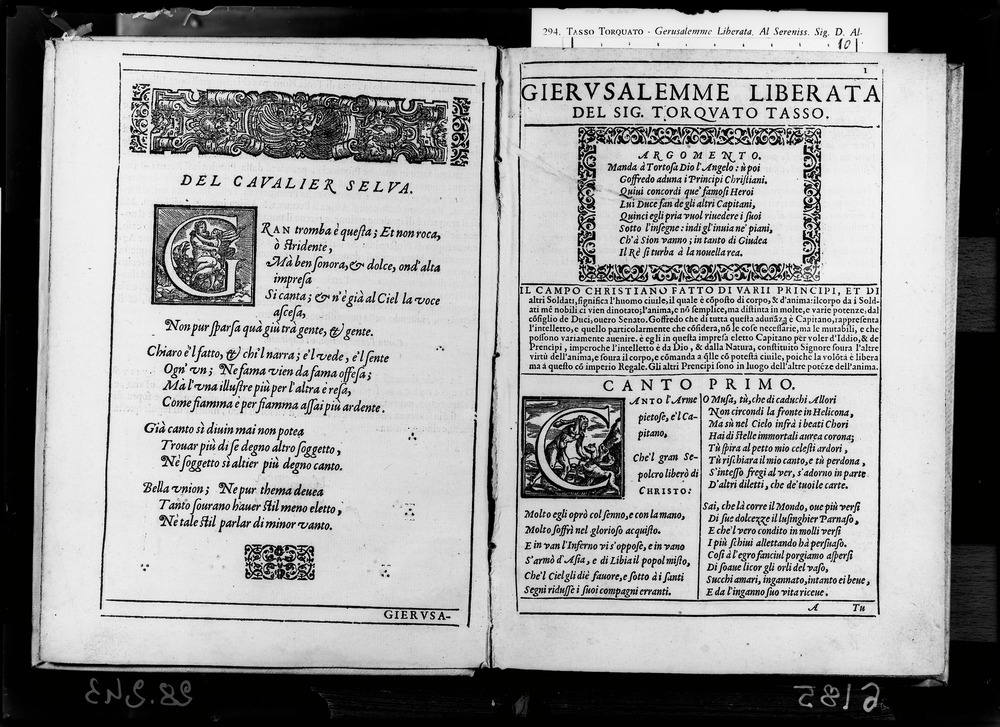 294. TASSO TORQUATO - Gerusalemme Liberata. Al Sereniss. Sig. D. Al-
10
DEL CAVALIER SELVA.
GRAN tromba è questa; Et non roca,
ò stridente,
Mà ben sonora, & dolce, ond'alta
impresa
Si canta; & n'è già al Ciel la voce
ascesa,
Non pur sparsa quà giù trà gente, & gente.
Chiaro è'l fatto, & chi'l narra; e'l vede, e'l sente
Ogn'vn; Ne fama vien da fama offesa;
Mà l'vna illustre più per l'altra è resa,
Come fiamma è per fiamma assai più ardente.
Già canto sì diuin mai non potea
Trouar più di se degno altro soggetto,
Nè soggetto sì altier più degno canto.
Bella vnion; Ne pur thema deuea
Tanto sourano hauer stil meno eletto,
Nè tale stil parlar di minor vanto.
GIERVSA-
1
GIERVSALEMME LIBERATA
DEL SIG. TORQVATO TASSO.
ARGOMENTO.
Manda à Tortosa Dio l'Angelo: ù poi
Goffredo aduna i Principi Christiani.
Quiui concordi que' famosi Heroi
Lui Duce fan de gli altri Capitani,
Quinci egli pria vuol riuedere i suoi
Sotto l'insegne: indi gl'inuia ne' piani,
Ch'à Sion vanno; in tanto di Giudea
Il Rè si turba à la nouella rea.
IL CAMPO CHRISTIANO FATTO DI VARII PRINCIPI, ET DI
altri Soldati, significa l'huomo ciuile, il quale è cõposto di corpo, & d'anima: il corpo da i Sol-
dati mē nobili ci vien dinotato; l'anima, e nõ semplice, ma distinta in molte, e varie potenze; dal
cõsiglio de Duci, ouero Senato. Goffredo che di tutta questa adunãza è Capitano, rappresenta
l'intelletto, e quello particolarmente che cõsidera, nõ le cose necessarie, ma le mutabili, e che
possono variamente auenire. è egli in questa impresa eletto Capitano per voler d'Iddio, & de
Prencipi, imperoche l'intelletto è da Dio, & dalla Natura, constituito Signore soura l'altre
virtù dell'anima, e soura il corpo, e cõmanda a q̃lle cõ potestà ciuile, poiche la volõtà è libera
ma à questo cõ imperio Regale. Gli altri Prencipi sono in luogo dell'altre potēze dell'anima.
CANTO PRIMO.
CANTO l'Arme
pietose, e'l Ca-
pitano,
Che'l gran Se-
polcro liberò di
CHRISTO:
Molto egli oprò col senno, e con la mano,
Molto soffrì nel glorioso acquisto.
E in van l'Inferno vi s'oppose, e in vano
S'armò d'Asia, e di Libia il popol misto,
Che'l Ciel gli diè fauore, e sotto à i santi
Segni ridusse i suoi compagni erranti.
O Musa, tù, che di caduchi Allori
Non circondi la fronte in Helicona,
Ma sù nel Cielo infrà i beati Chori
Hai di stelle immortali aurea corona;
Tù spira al petto mio celesti ardori,
Tù rischiara il mio canto, e tù perdona,
S'intesso fregi al ver, s'adorno in parte
D'altri diletti, che de' tuoi le carte.
Sai, che là corre il Mondo, oue più versi
Di sue dolcezze il lusinghier Parnaso,
E che'l vero condito in molli versi
I più schiui allettando hà persuaso.
Così à l'egro fanciul porgiamo aspersi
Di soaue licor gli orli del vaso,
Succhi amari, ingannato, intanto ei beue,
E da l'inganno suo vita riceue.
A Tu
28.243
6185